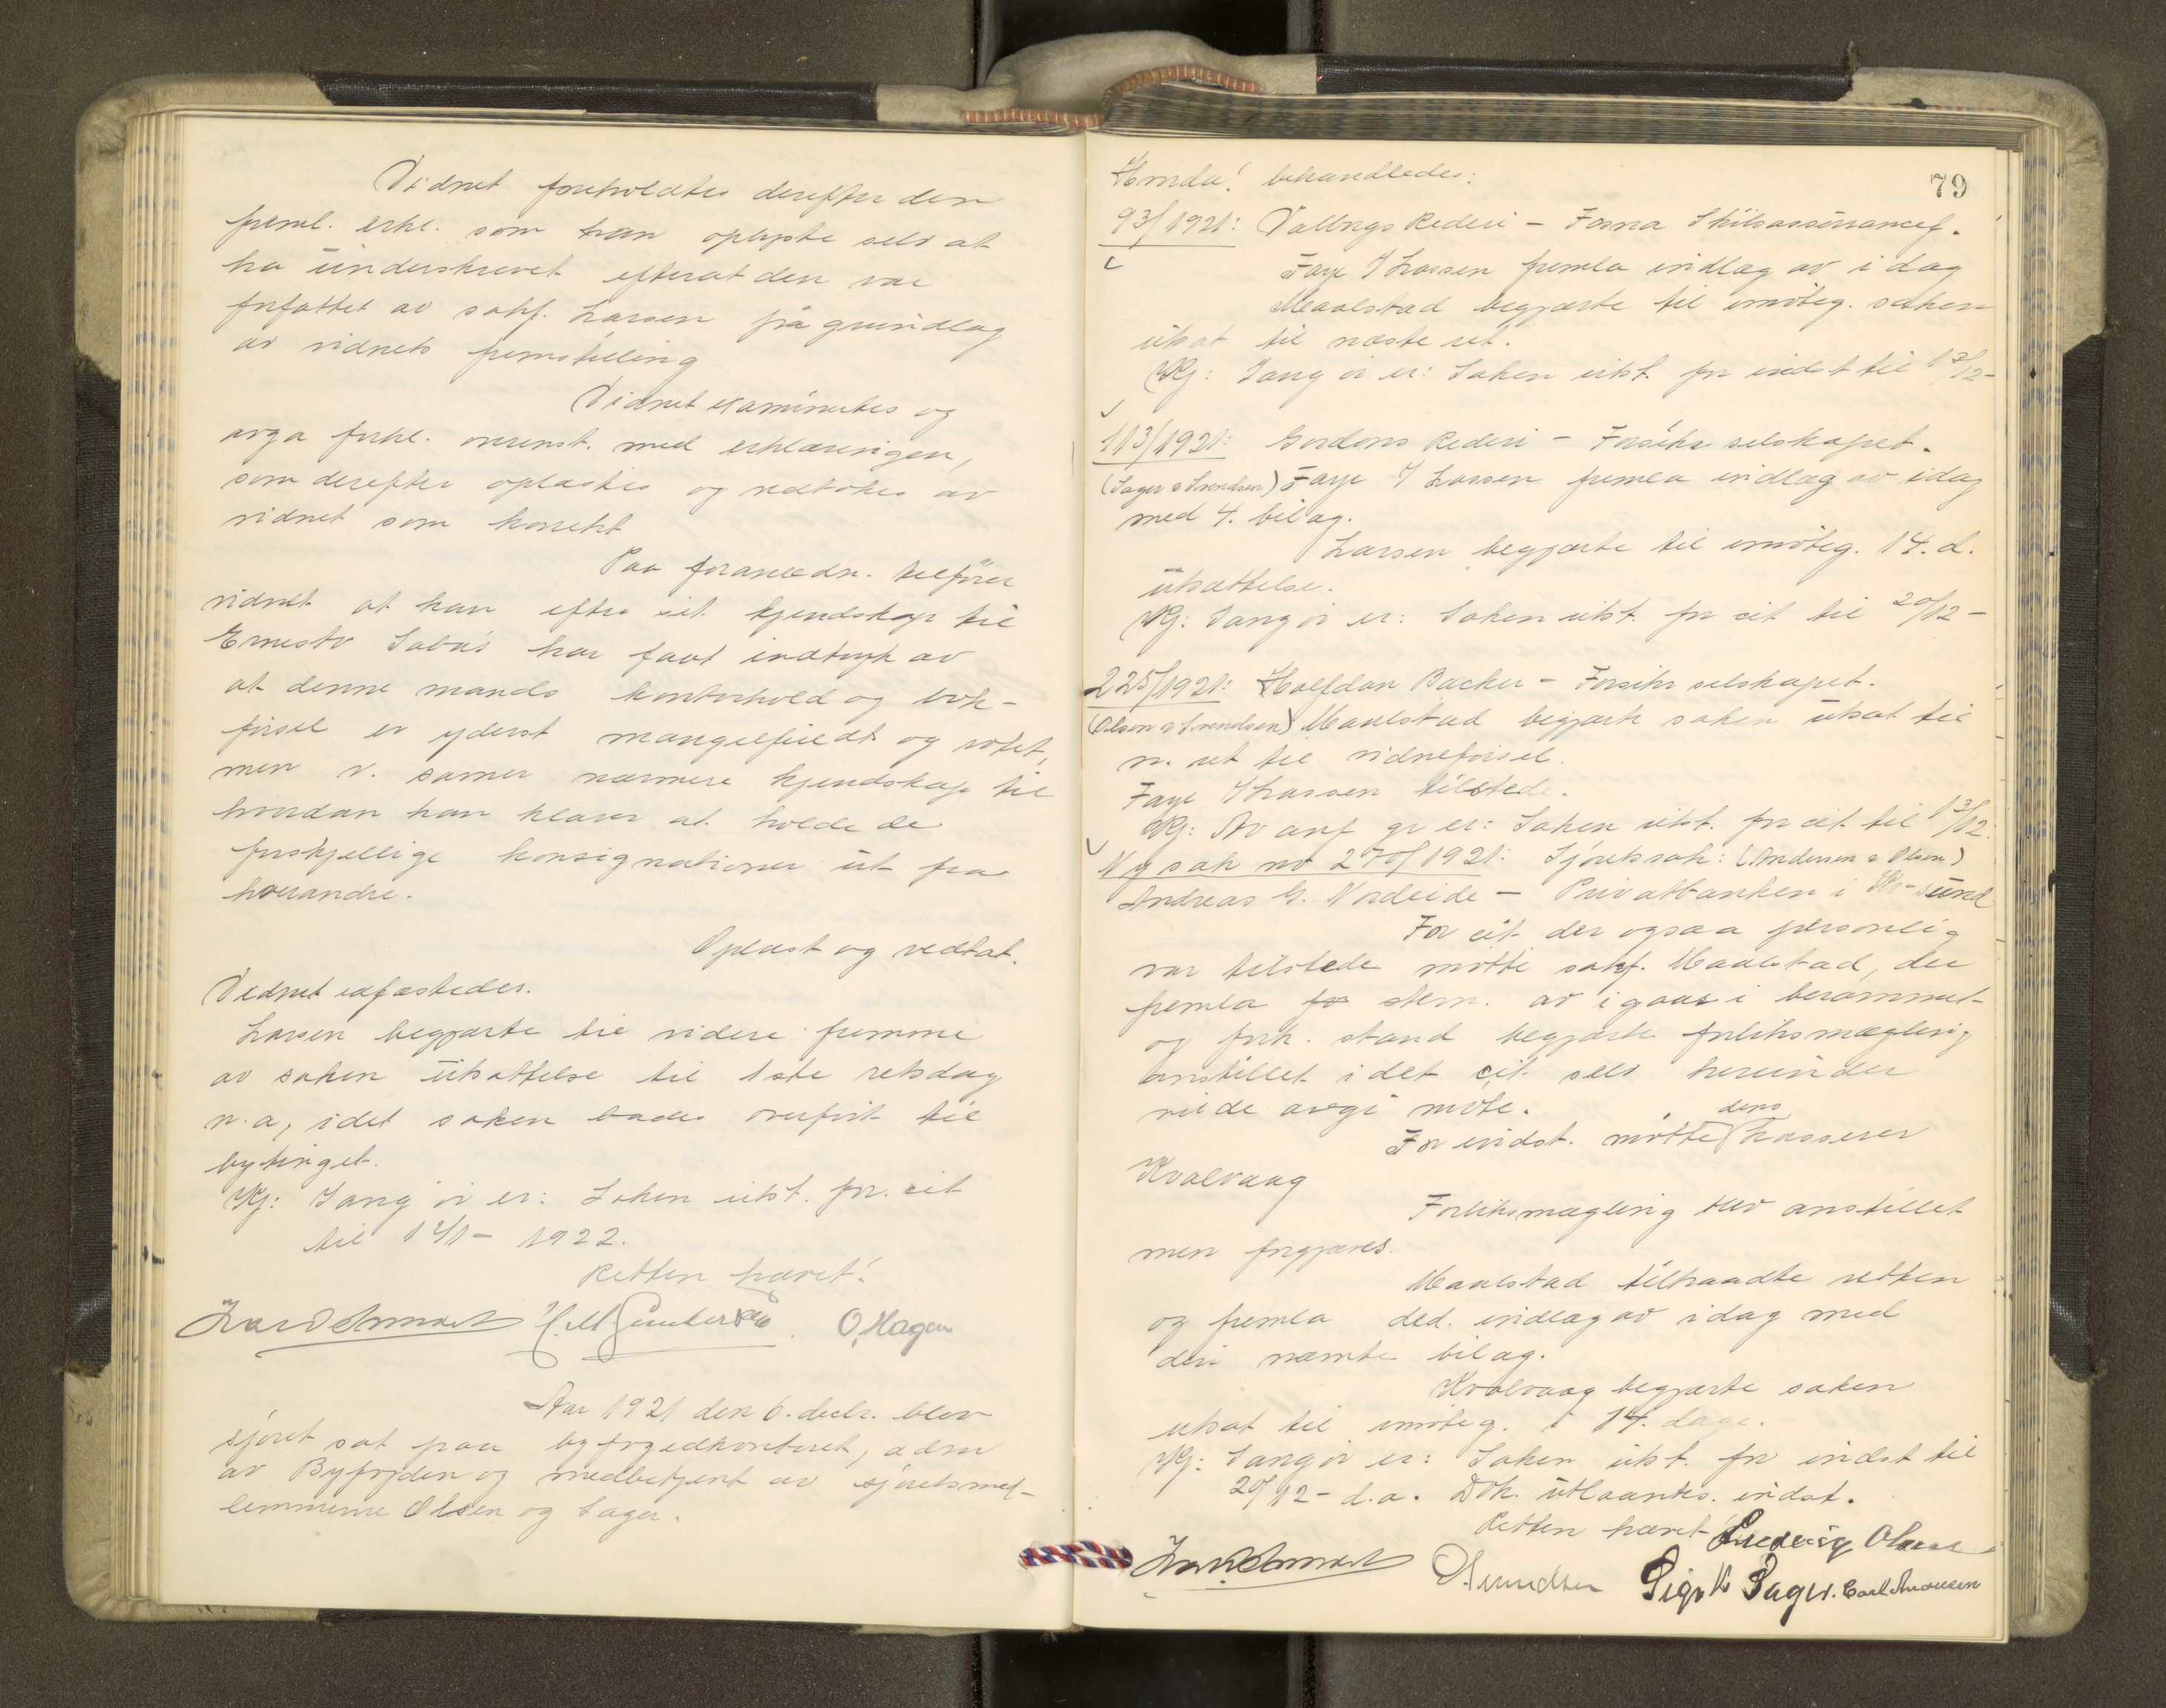 Vidnet foreholdtes derefter den
freml. erkl. som han oplyste selv at
ha underskrevet efterat den var
forfattet av sakf. Larsen på grundlag
av vidnets fremstilling
Vidnet examinertes og
avga forkl. overenst. med erklæringen,
som derefter oplæstes og vedtokes av
vidnet som korrekt
Paa foranledn. tilføier
vidnet at han efter sit kjendskap til
Ernesto har faat indtryk av
at denne mands kontorhold og bok-
førsel er yderst mangelfuldt og rotet,
men v. savner nærmere kjendskap til
hvordan han klarer at holde de
forskjellige konsignationer ut fra
hverandre.
Oplæst og vedtat.
Vidnet edfæstedes.
Larsen begjærte til videre fremme
av saken utsættelse til 1ste retsdag
n.a, idet saken bades overført til
bytinget.
Kj: Tang ov er: Saken utst. for cit
til 1922.
Retten hævet!
O. Hagen
Aar 1921 den 6. decbr. blev
sjøret sat paa byfogedkontoret, adm
av Byfogden og medbetjent av sjøretsmed-
lemmerne Olsen og Sager.
79
behandledes:
93/1921: Rederi - Fosna Skibsassurancef.
Faye Larsen femla indlæg av i dag
Maalstad begjærte til imøteg. saken
utsat til næste ret.
Kj: Tang ov er: Saken utst. for indst til 13/12-
113/1921: Gordons Rederi - Forsikr selskapet.
(Sager & Svendsen) Faye Larsen femla indlæg av idag
med 4. bilag.
Larsen begjærte til imøteg. 14. d.
utsættelse.
Kj: Tang ov er: Saken utst. for cit til 20/12-
225/1921: Halfdan Backer - Forsikr selskapet.
(Olsen & Svendsen) Maalstad begjærte saken utsat til
n. ret til vidneførsel.
Faye Larsen tilstede.
Kj: Av anf gr er: Saken utst. for cit til 13/12.
Ny sak no 270/1921: Sjøretssak: (Andersen & Olsen)
Andreas G. Nordeide - Privatbanken i Kr-sund
For cit. der ogsaa personlig
var tilstede møtte sakf. Maalstad, der
femla stevn. av igaar i berammet-
og fork. stand begjærte forliksmægling
anstillet idet cit. selv herunder
vilde avgi møte.
For indst. møtte dens kasserer
Kvalvaag
Forliksmægling blev anstillet
men forgjæves.
Maalstad tilhaandte retten
og femla ded. indlæg av idag med
deri nævnte bilag.
Kvalvaag begjærte saken
utsat til imøteg. i 14. dage.
Kj: Tang ov er: Saken utst. for indst til
20/12- d.a. Dok. utlaantes. indst.
Retten hævet Ludvig Olsen
Svendsen Sigv K Sager. Carl Andersen